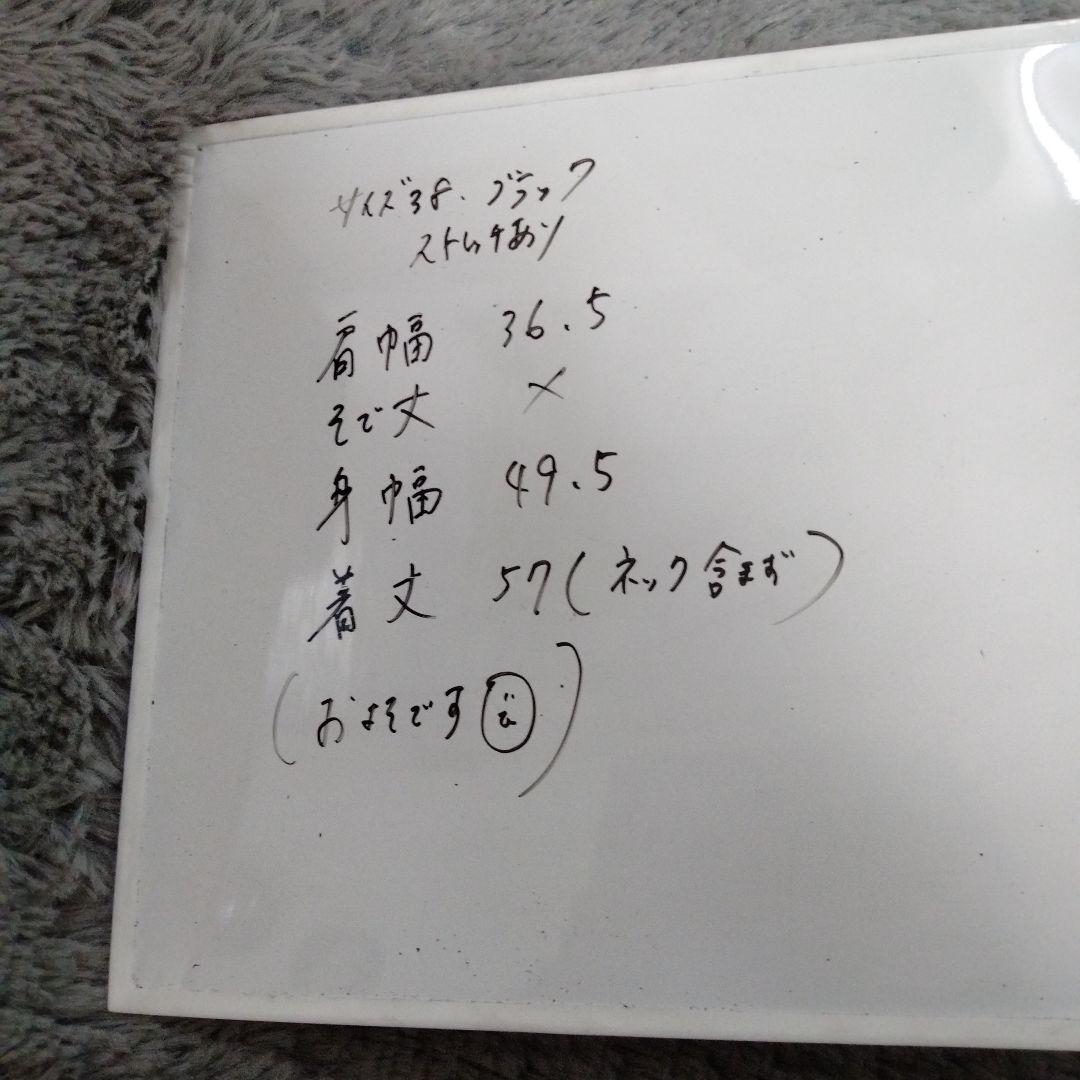 サイズ38.ブラック
ストレッチあり
肩幅 36.5
そで丈 ×
身幅 49.5
着丈 57(ネック含まず)
(およそです)